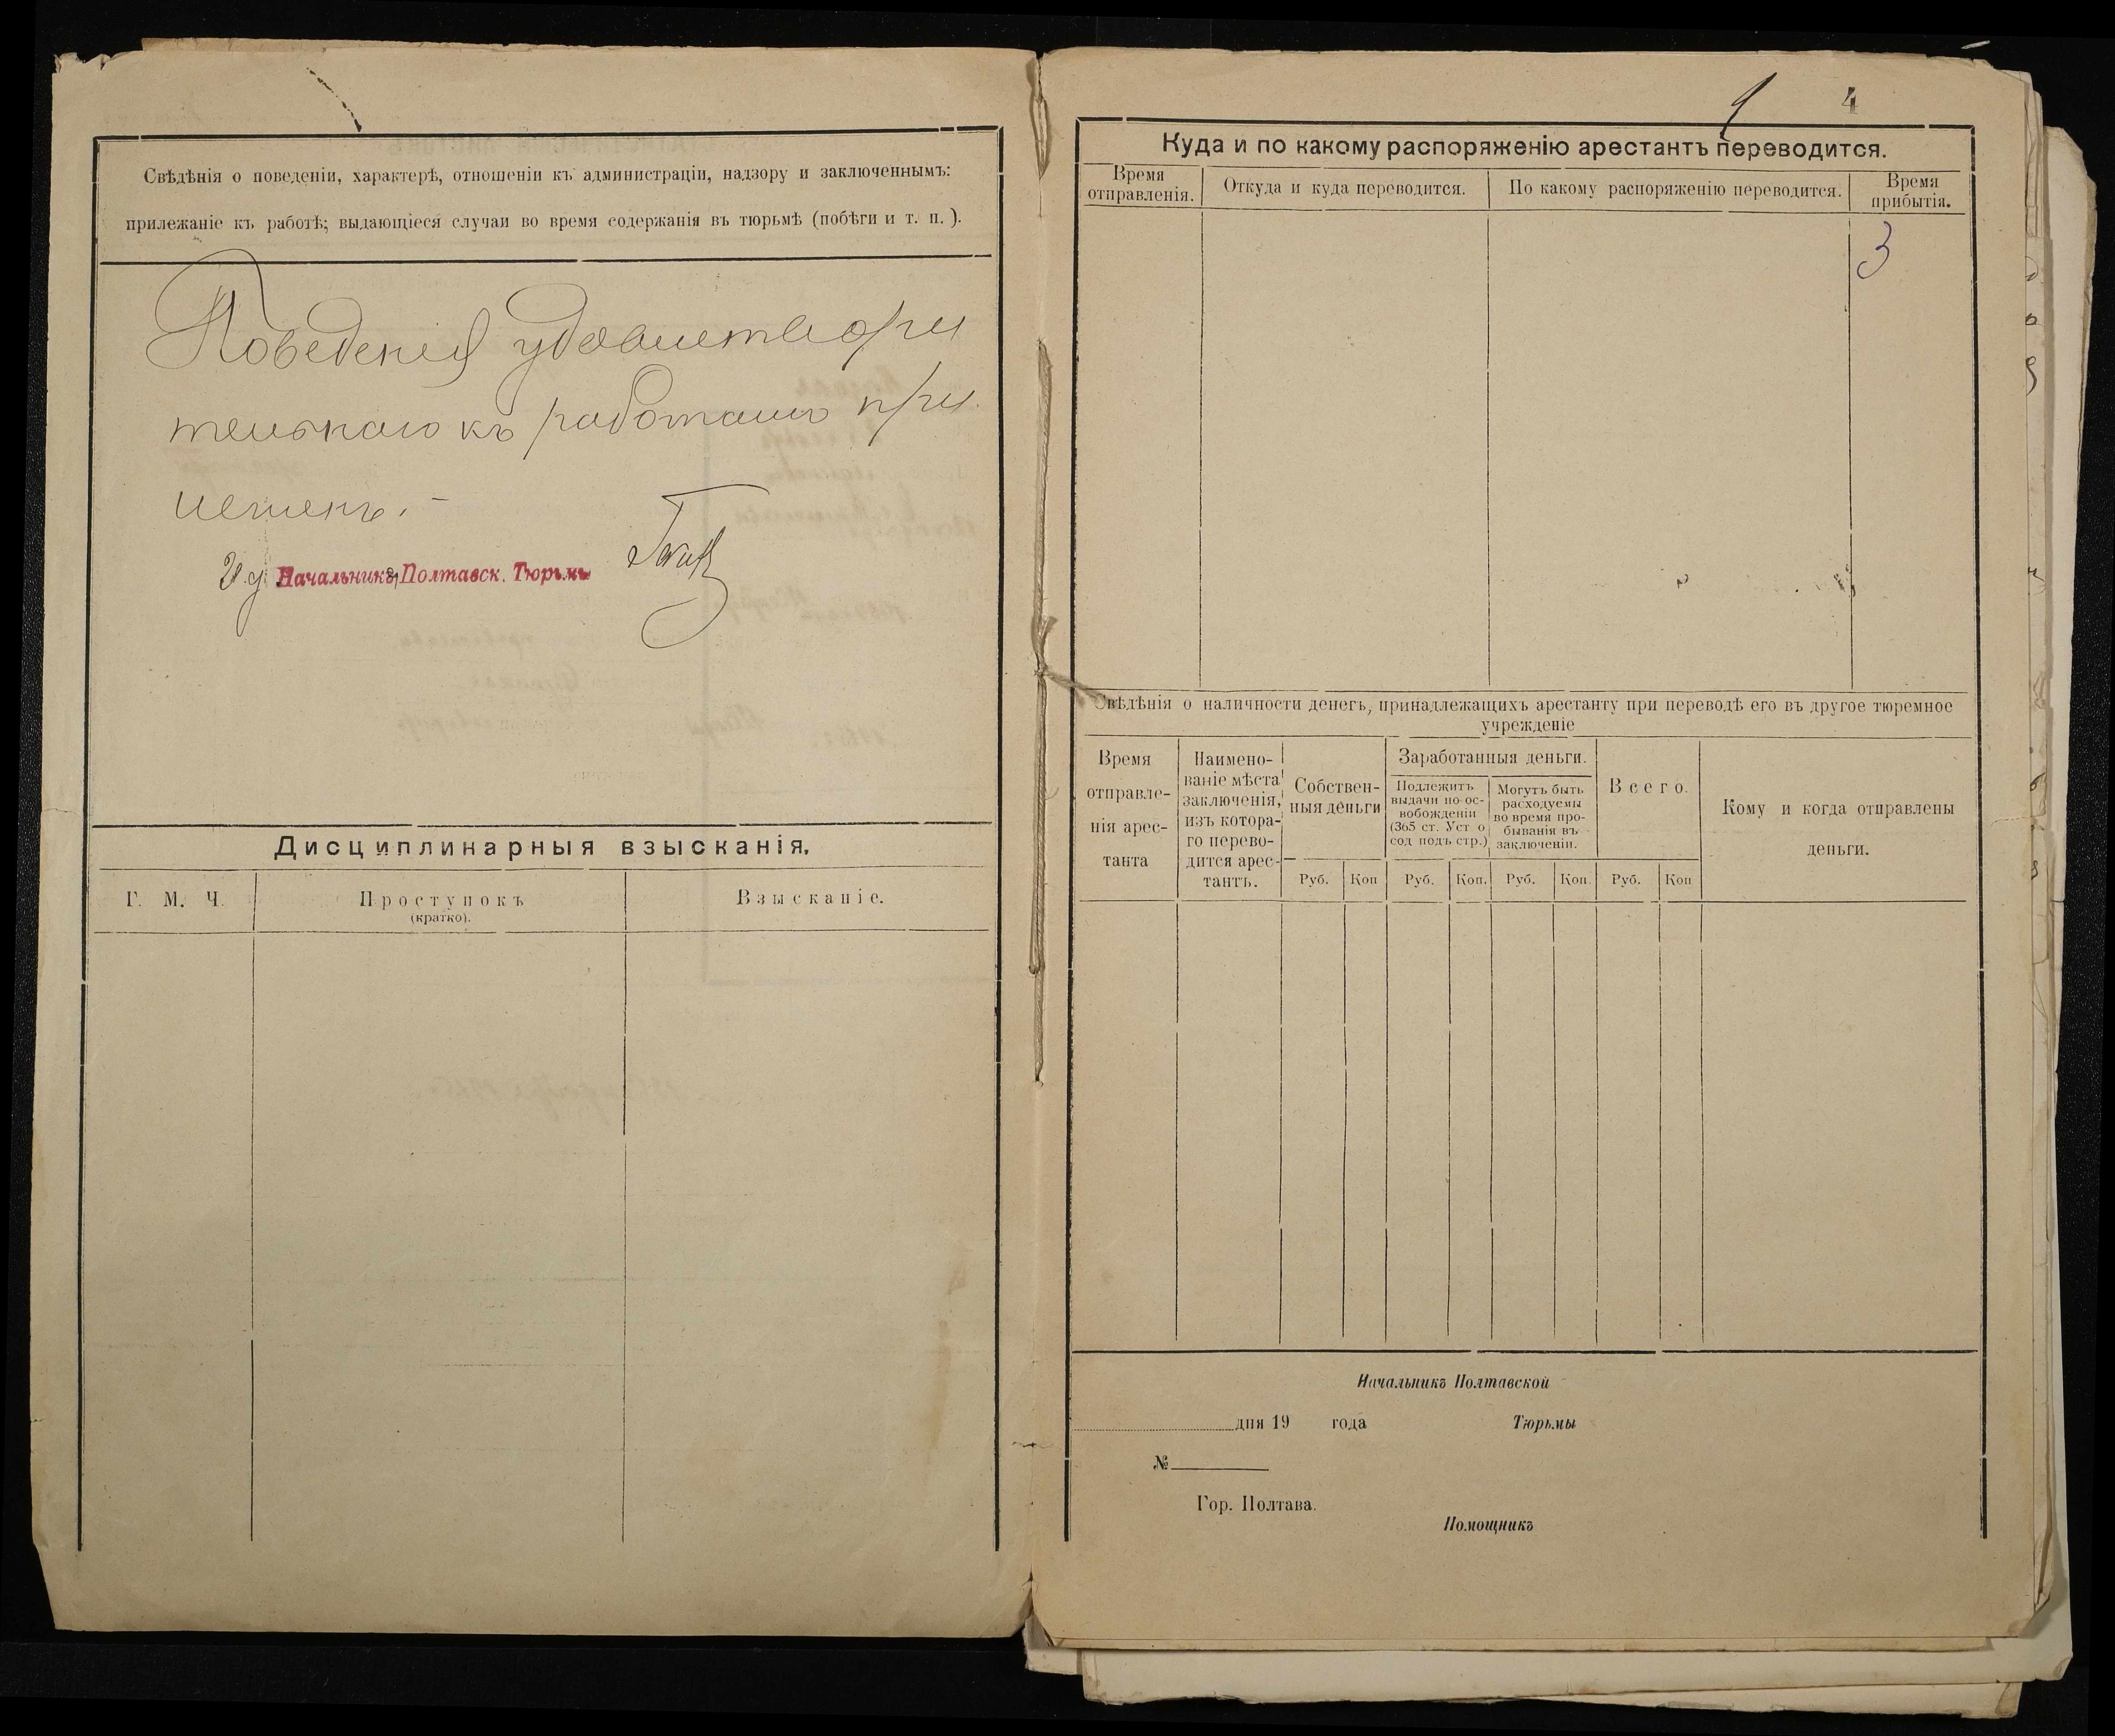 Свѣдѣнія о поведеніи, характерѣ, отношеніи къ администраціи, надзору и заключеннымъ:
прилежаніе къ работѣ; выдающіеся случаи во время содержанія въ тюрьмѣ (побѣги и т. п. ).
Поведенія удовлетвори
тельнаго къ работамъ при
лежень.
И. д. Начальника Полтавск. Тюрьмы
Дисциплинарныя взысканія.
Г. М. Ч.
Проступокъ
(кратко).
Взысканіе.
4
Куда и по какому распоряженію арестантъ переводится.
Время
отправленія.
Откуда и куда переводится.
По какому распоряженію переводится.
Время
прибытія.
3
Свѣдѣнія о наличности денегъ, принадлежащихъ арестанту при переводѣ его въ другое тюремное
учрежденіе
Время
отправле-
нія арес-
танта
Наимено-
ваніе мѣста
заключенія,
изъ котора-
го перево-
дится арес-
тантъ.
Собствен-
ныя деньги
Заработанныя деньги.
Подлежитъ
выдачи по ос-
вобожденіи
(365 ст. Уст о
сод подъ стр.)
Могутъ быть
расходуемы
во время про-
быванія въ
заключеніи.
Всего.
Кому и когда отправлены
деньги.
Руб. Коп Руб. Коп. Руб. Коп. Руб. Коп
Начальникъ Полтавской
дня 19 года Тюрьмы
№
Гор. Полтава.
Помощникъ